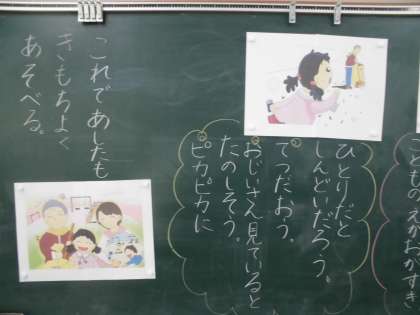 ひとりだと
しんどいだろう。
てつだおう。
おじいさん見ていると
たのしそう。
ピカピカに
これであしたも
きもちよく
あそべる。